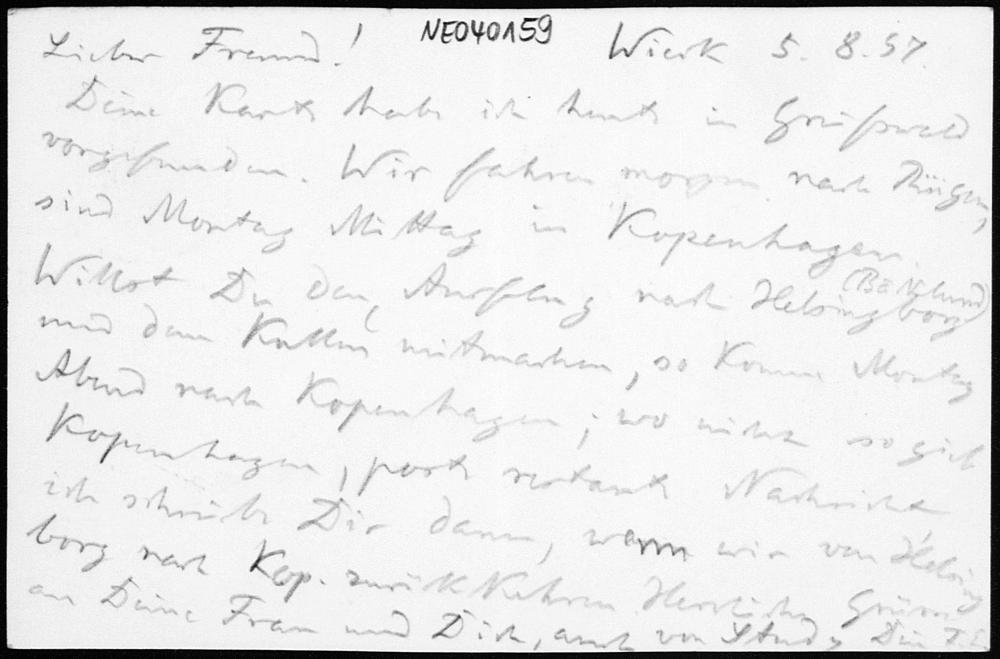 NE040159
Lieber Freund! Wiek 5. 8. 97.
Deine Karte habe ich heute in Greifswald
vorgefunden. Wir fahren morgen nach Rügen,
sind Montag Mittag in Kopenhagen.
Willst Du den Ausflug nach Helsingborg
und dem Kullen mitmachen, so komme Montag
Abend nach Kopenhagen; wo nicht so gieb
Kopenhagen, poste restante Nachricht,
ich schreibe Dir dann, wenn wir von Helsing
borg nach Kop. zurückkehren. Herzliche Grüsse
an Deine Frau und Dich, auch von Study Dein F.E.